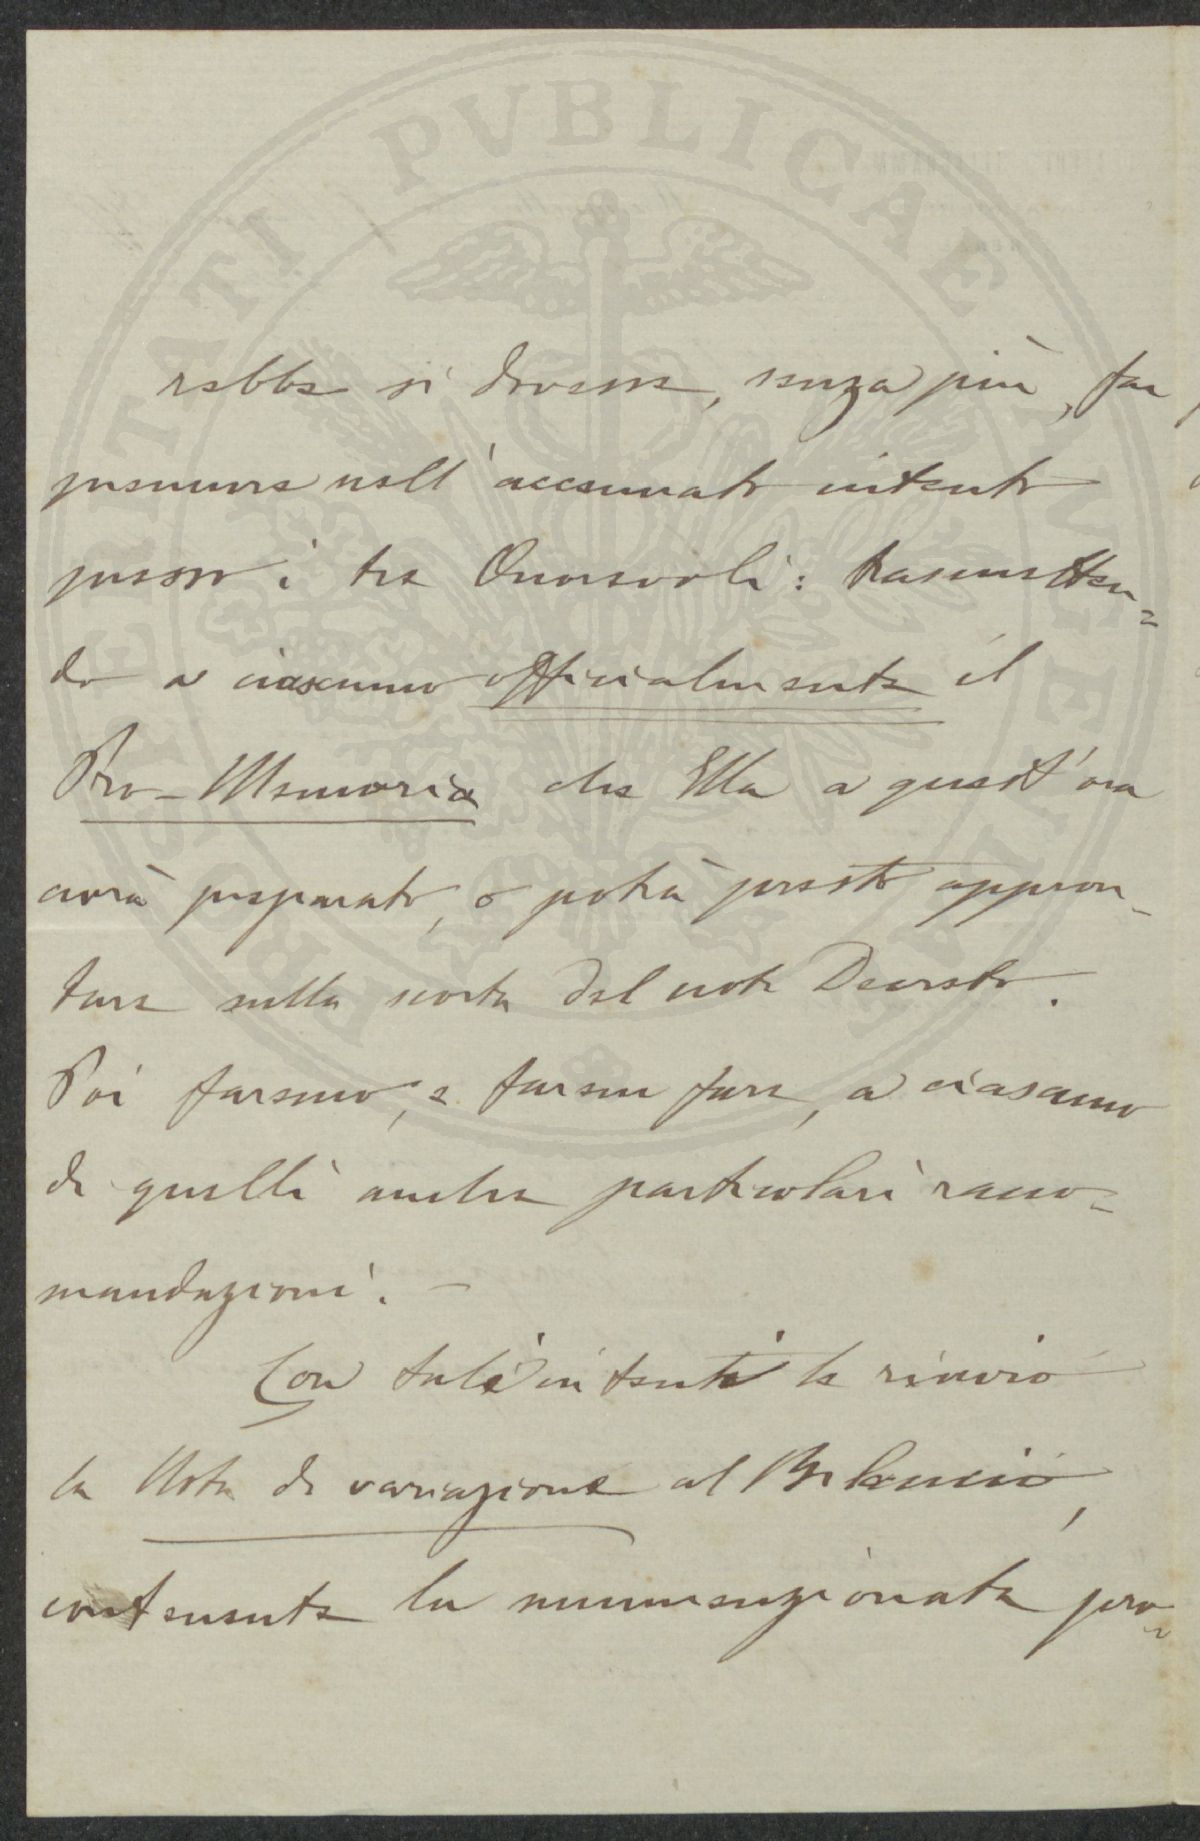 rebbe si dovesse, senza più, far
premure nell'accennato intento
presso i tre Onorevoli: trasmetten-
do a ciascuno officialmente il
Pro-Memoria che Ella a quest'ora
avrà preparato, o potrà presto appron-
tare sulla scorta del noto Decreto.
Poi faremo, e farem fare, a ciascuno
di quelli anche particolari racco-
mandazioni. —
Con tale intento le rinvio
la Nota di variazione al Bilancio,
contenente la menzionata pro-
PROSPERITATI PVBLICAE